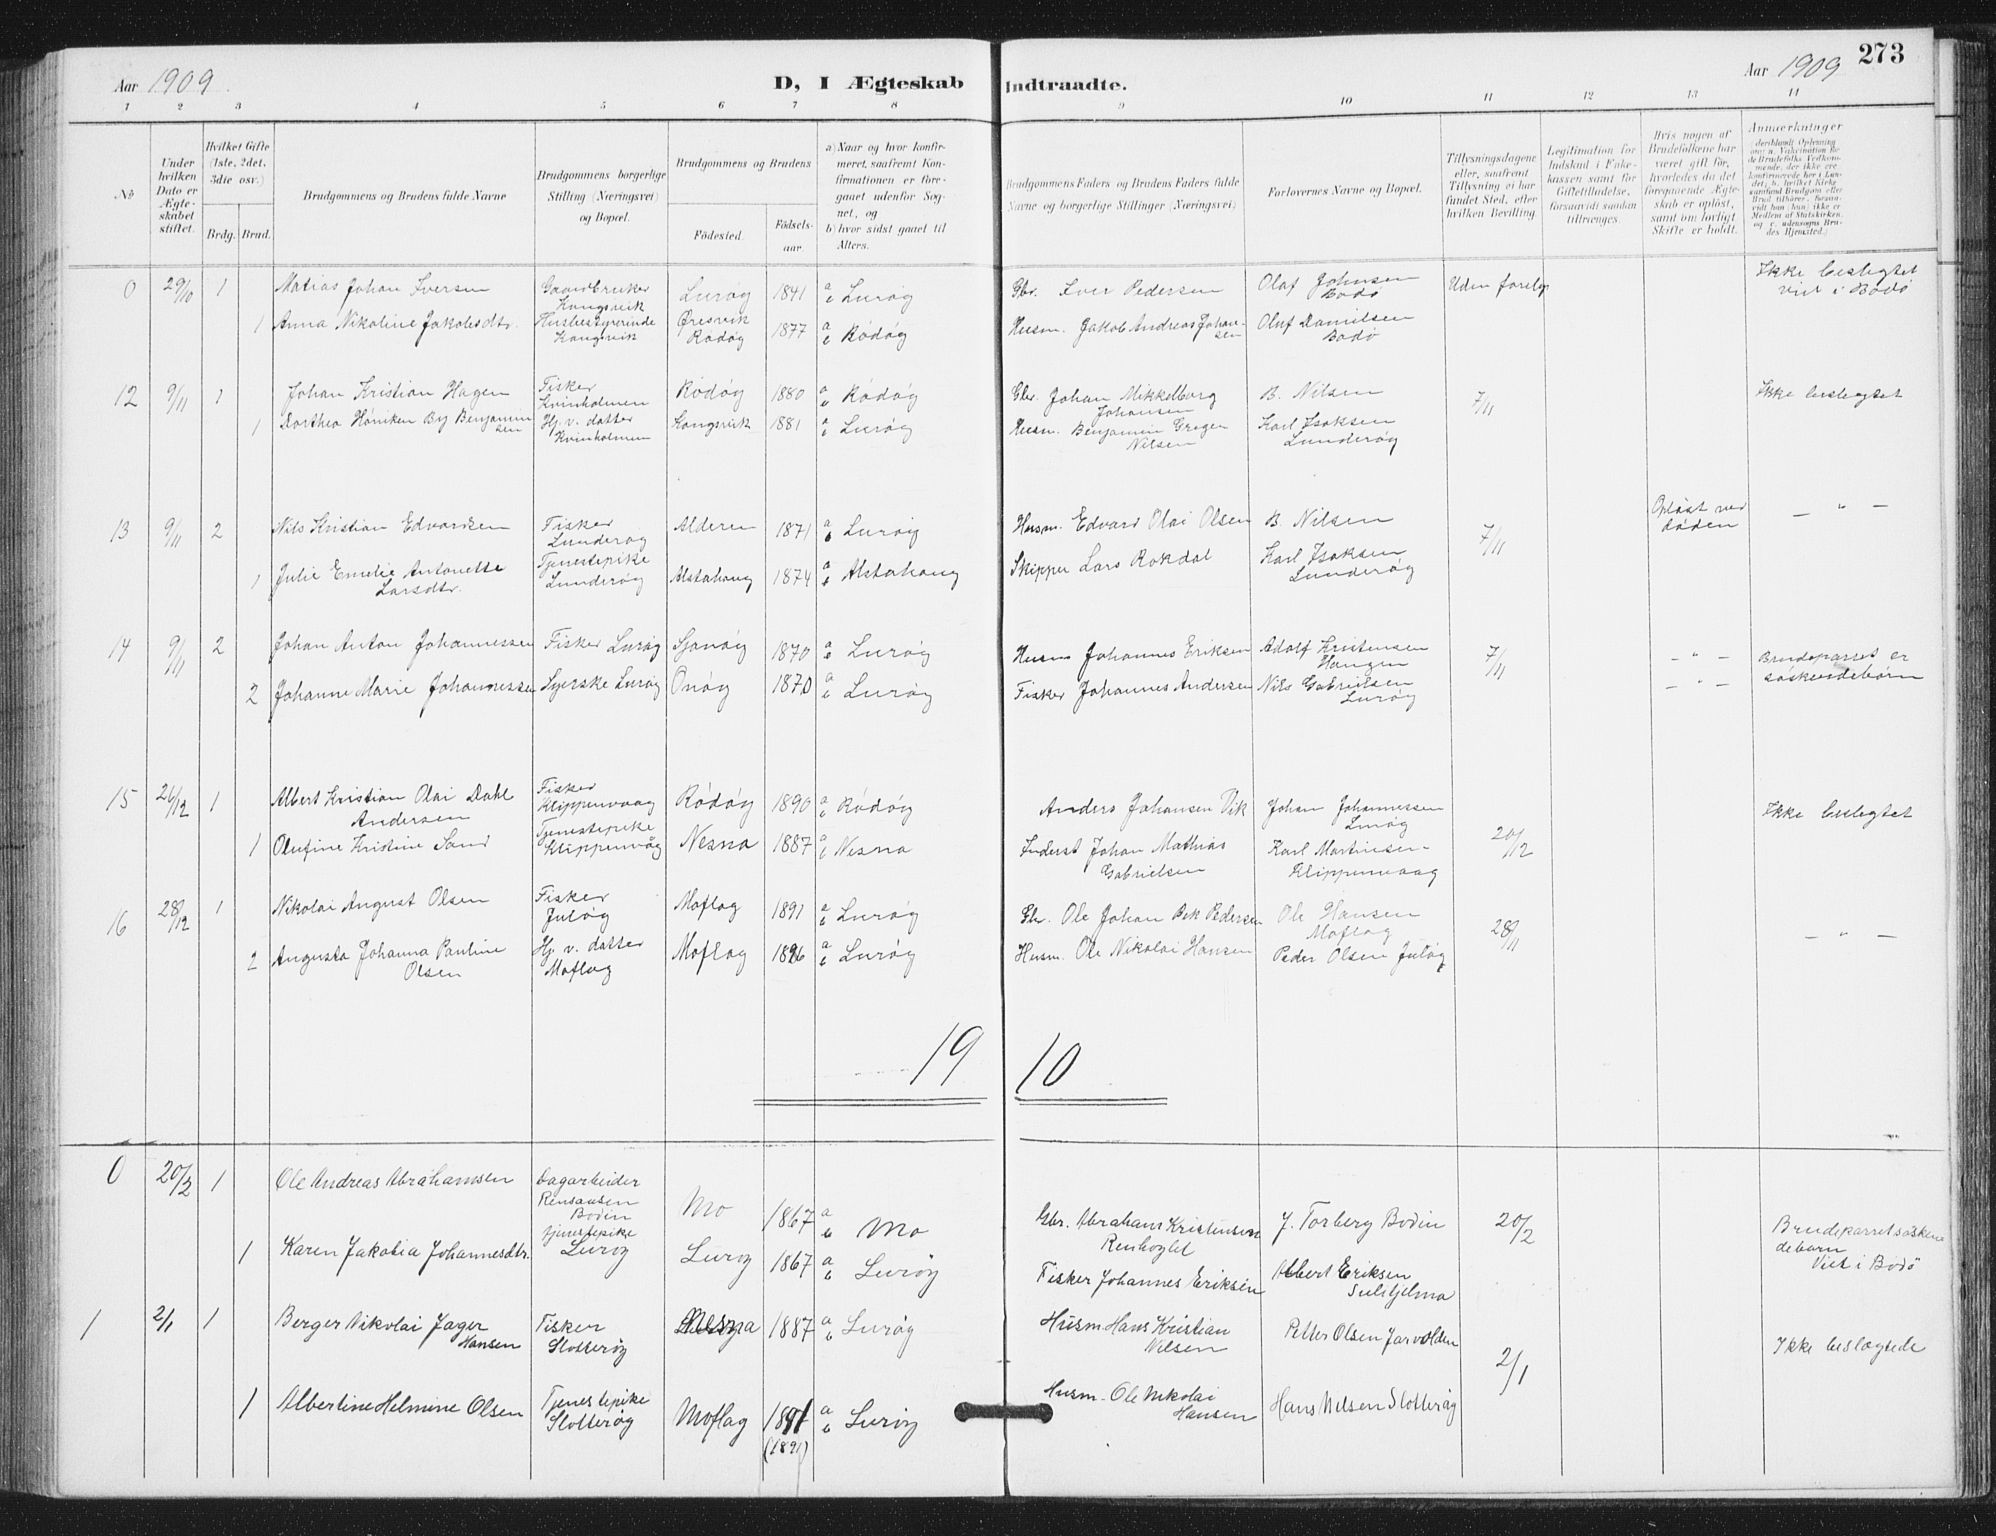 Aar 1909. D, I Ægteskab Indtraadte. Aar 1909 273
1 2 3 4 5 6 7 8 9 10 11 12 13 14
No
Under hvilken Dato er Ægteskabet stiftet.
Hvilket Gifte (1ste, 2det, 3die osv.)
Brdg. Brud.
Brudgommens og Brudens fulde Navne
Brudgommens borgerlige Stilling (Næringsvei) og Bopæl.
Brudgommens og Brudens
Fødested. Fødselsaar.
a) Naar og hvor konfirmeret, saafremt Konfirmationen er foregaaet udenfor Sognet, og
b) hvor sidst gaaet til Alters.
Brudgommens Faders og Brudens Faders fulde Navne og borgerlige Stillinger (Næringsvei)
Forlovernes Navne og Bopæl.
Tillysningsdagene eller, saafremt Tillysning ei har fundet Sted, efter hvilken Bevilling.
Legitimation for Indskud i Enkekassen samt for Giftetilladelse, forsaavidt saadan tiltrænges.
Hvis nogen af Brudefolkene har været gift før, hvorledes da det foregaaende Ægteskab er opløst, samt om lovligt Skifte er holdt.
Anmærkninger
0 29/10 1 Matias Johan Iversen Gaardbruker Kongsvik Lurøy 1841 a b Lurøy Gbr. Iver Pedersen Olaf Johnsen Bodø Uden foreløg Ikke beslegtet viet i Bodø
1 Anna Nikoline Jakobsdtr. Husbestyrerinde Kongsvik Øresvik Rødøy 1877 a b Rødøy Husm. Jakob Andreas Johansen Oluf Danielsen Bodø
12 9/11 1 Johan Kristian Hagen Fisker Kvinholmen Rødøy 1880 a b Rødøy Gbr. Johan Mikkelborg Johansen B. Nilsen 7/11 Ikke beslegtet
1 Dorthea Høniken By Benjaminsen Hj. v. datter Kvinholmen Kongsvik 1881 a b Lurøy Husm. Benjamin Greger Nilsen Karl Isaksen Lunderøy
13 9/11 2 Nils Kristian Edvardsen Fisker Lunderøy Alderen 1871 a b Lurøy Husm. Edvard Olai Olsen B. Nilsen 7/11 Opløst ved døden — " —
1 Julie Emelie Antonette Larsdtr. Tjenestepike Lunderøy Alstahaug 1874 a b Alstahaug Skipper Lars Rokdal Karl Isaksen Lunderøy
14 9/11 2 Johan Anton Johannessen Fisker Lurøy Sjonøy 1870 a b Lurøy Husm Johannes Eriksen Adolf Kristensen Haugen 7/11 — " — Brudeparret er søskendebørn
2 Johanne Marie Johannessen Syerske Lurøy Onøy 1870 a b Lurøy Fisker Johannes Andersen Nils Gabrielsen Lurøy — " —
15 26/12 1 Albert Kristian Olai Dahl Andersen Fisker Klippenvaag Rødøy 1890 a b Rødøy Anders Johansen Vik Johan Johannessen Lurøy 20/12 Ikke beslegtet
1 Olufine Kristine Sand Tjenestepike Klippenvåg Nesna 1887 a b Nesna Inderst Johan Mathias Gabrielsen Karl Martinsen Klippenvaag
16 28/12 1 Nikolai August Olsen Fisker Juløy Moflag 1891 a b Lurøy Gbr. Ole Johan Bek Pedersen Ole Hansen Moflag 28/11 — " —
2 Augusta Johanna Pauline Olsen Hj. v. datter Moflag Moflag 1886 a b Lurøy Husm. Ole Nikolai Hansen Peder Olsen Juløy
19 10
0 20/2 1 Ole Andreas Abrahamsen Dagarbeider Bodin Mo 1867 a b Mo Gbr. Abraham Kristensen J. Torberg Bodin 20/2 Brudeparret søskendebarn Viet i Bodø
1 Karen Jakobia Johannesdtr. tjenestepike Lurøy Lurøy 1867 a b Lurøy Fisker Johannes Eriksen Albert Eriksen Sulitjelma
1 2/1 1 Berger Nikolai Jager Hansen Fisker Slotterøy Nesna 1887 a b Lurøy Husm Hans Kristian Nilsen Petter Olsen Jarvolden 2/1 Ikke beslægtede
1 Albertine Helmine Olsen Tjenestepike Slotterøy Moflag 1891 (1891) a b Lurøy Husm. Ole Nikolai Hansen Hans Nilsen Slotterøy